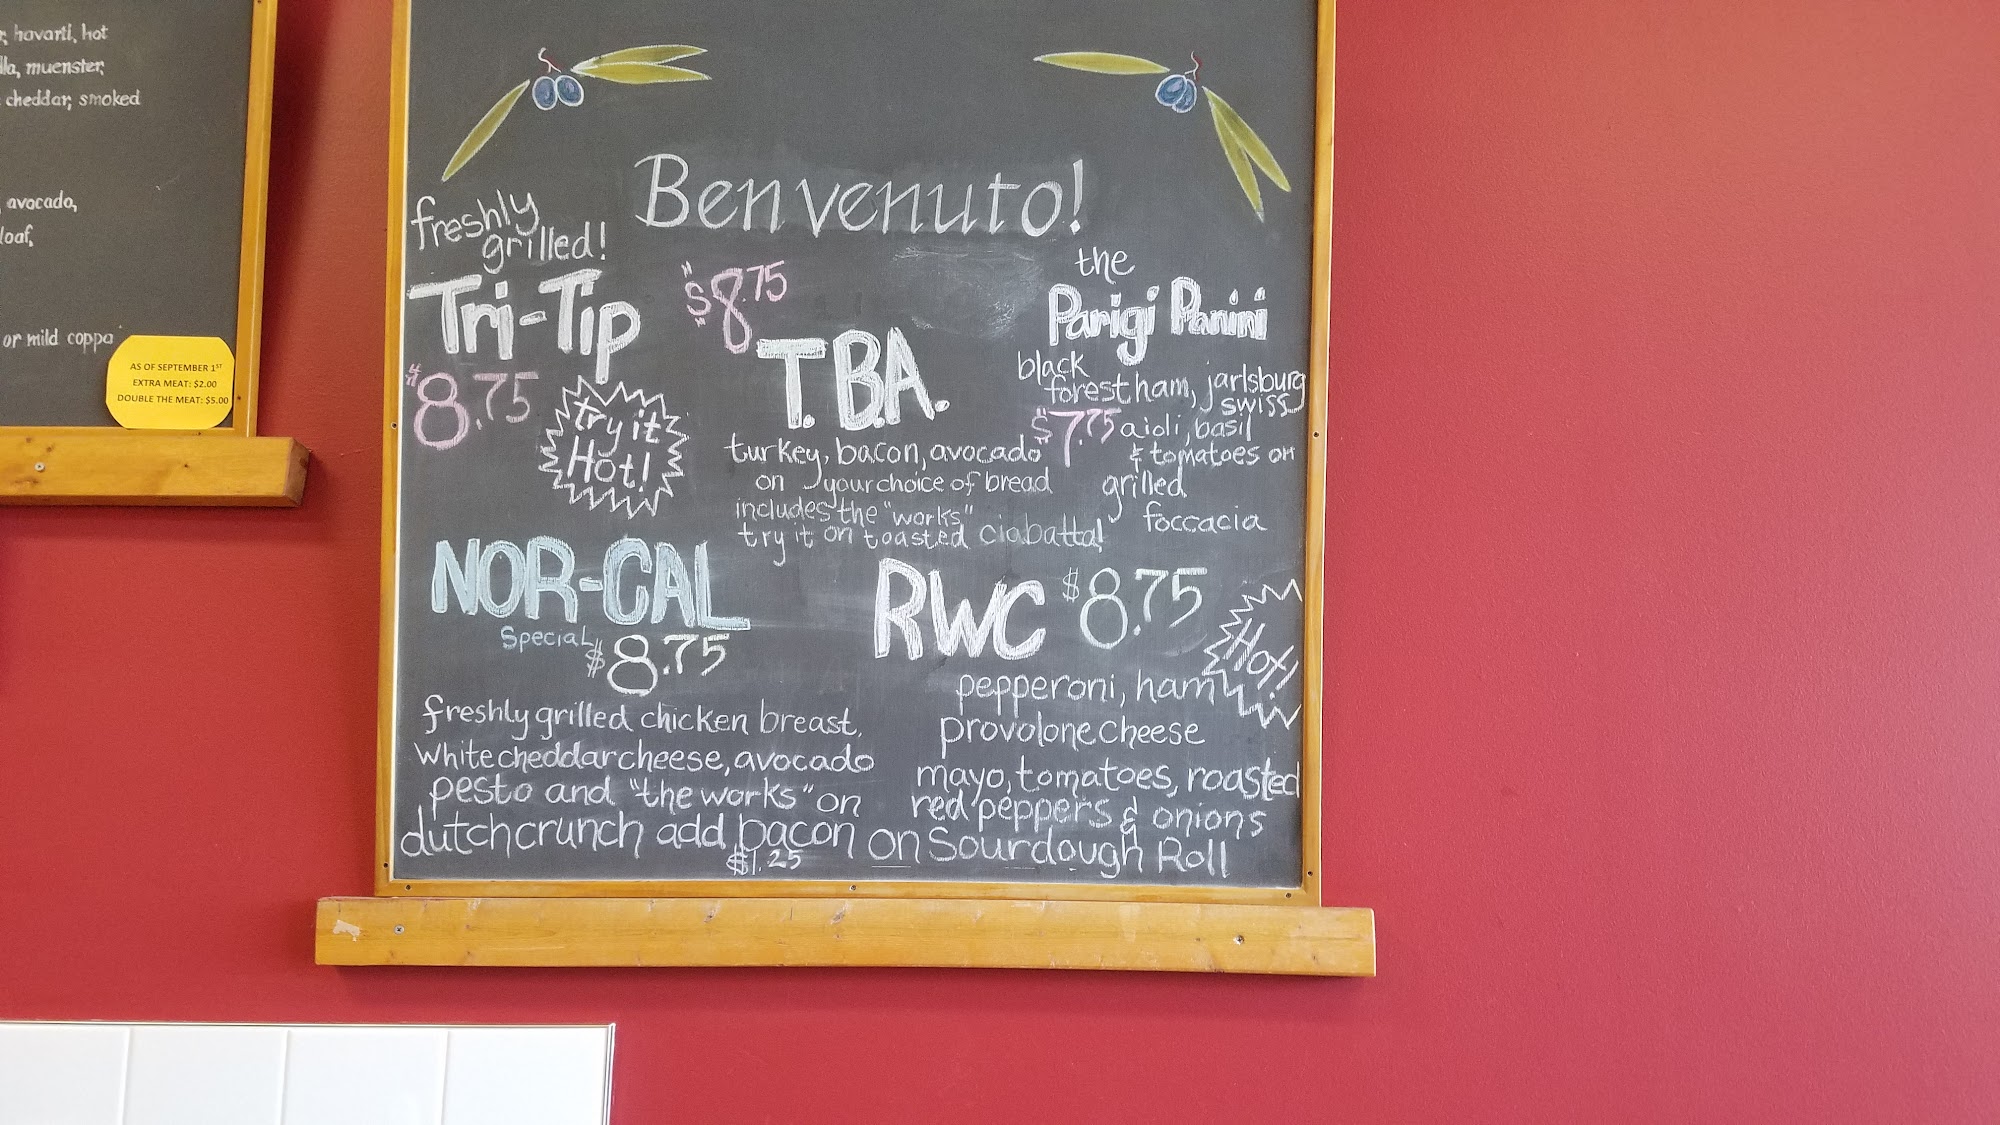 havarti, hot
muenster,
cheddar, smoked
avocado,
loaf,
or mild coppa
AS OF SEPTEMBER 1ST
EXTRA MEAT: $2.00
DOUBLE THE MEAT: $5.00
Benvenuto!
freshly
grilled!
Tri-Tip
8.75
try it
Hot!
$8.75
T.B.A.
turkey, bacon, avocado
on your choice of bread
includes the "works"
try it on toasted ciabatta!
the
Parigi Panini
black
forest ham, jarlsburg
swiss
$7.75 aioli, basil
& tomatoes on
grilled
foccacia
NOR-CAL
Special
$8.75
freshly grilled chicken breast,
white cheddar cheese, avocado
pesto and "the works" on
dutch crunch add bacon
$1.25
RWC $8.75
Hot!
pepperoni, ham
provolone cheese
mayo, tomatoes, roasted
red peppers & onions
on Sourdough Roll